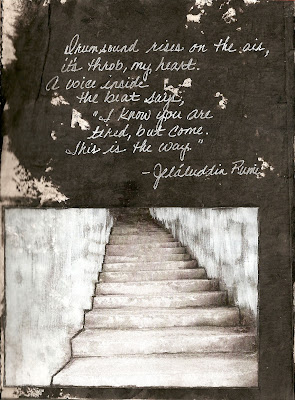 Drumsound rises on the air,
its throb, my heart.
A voice inside
the beat says,
"I know you are
tired, but come.
This is the way."
- Jelaluddin Rumi